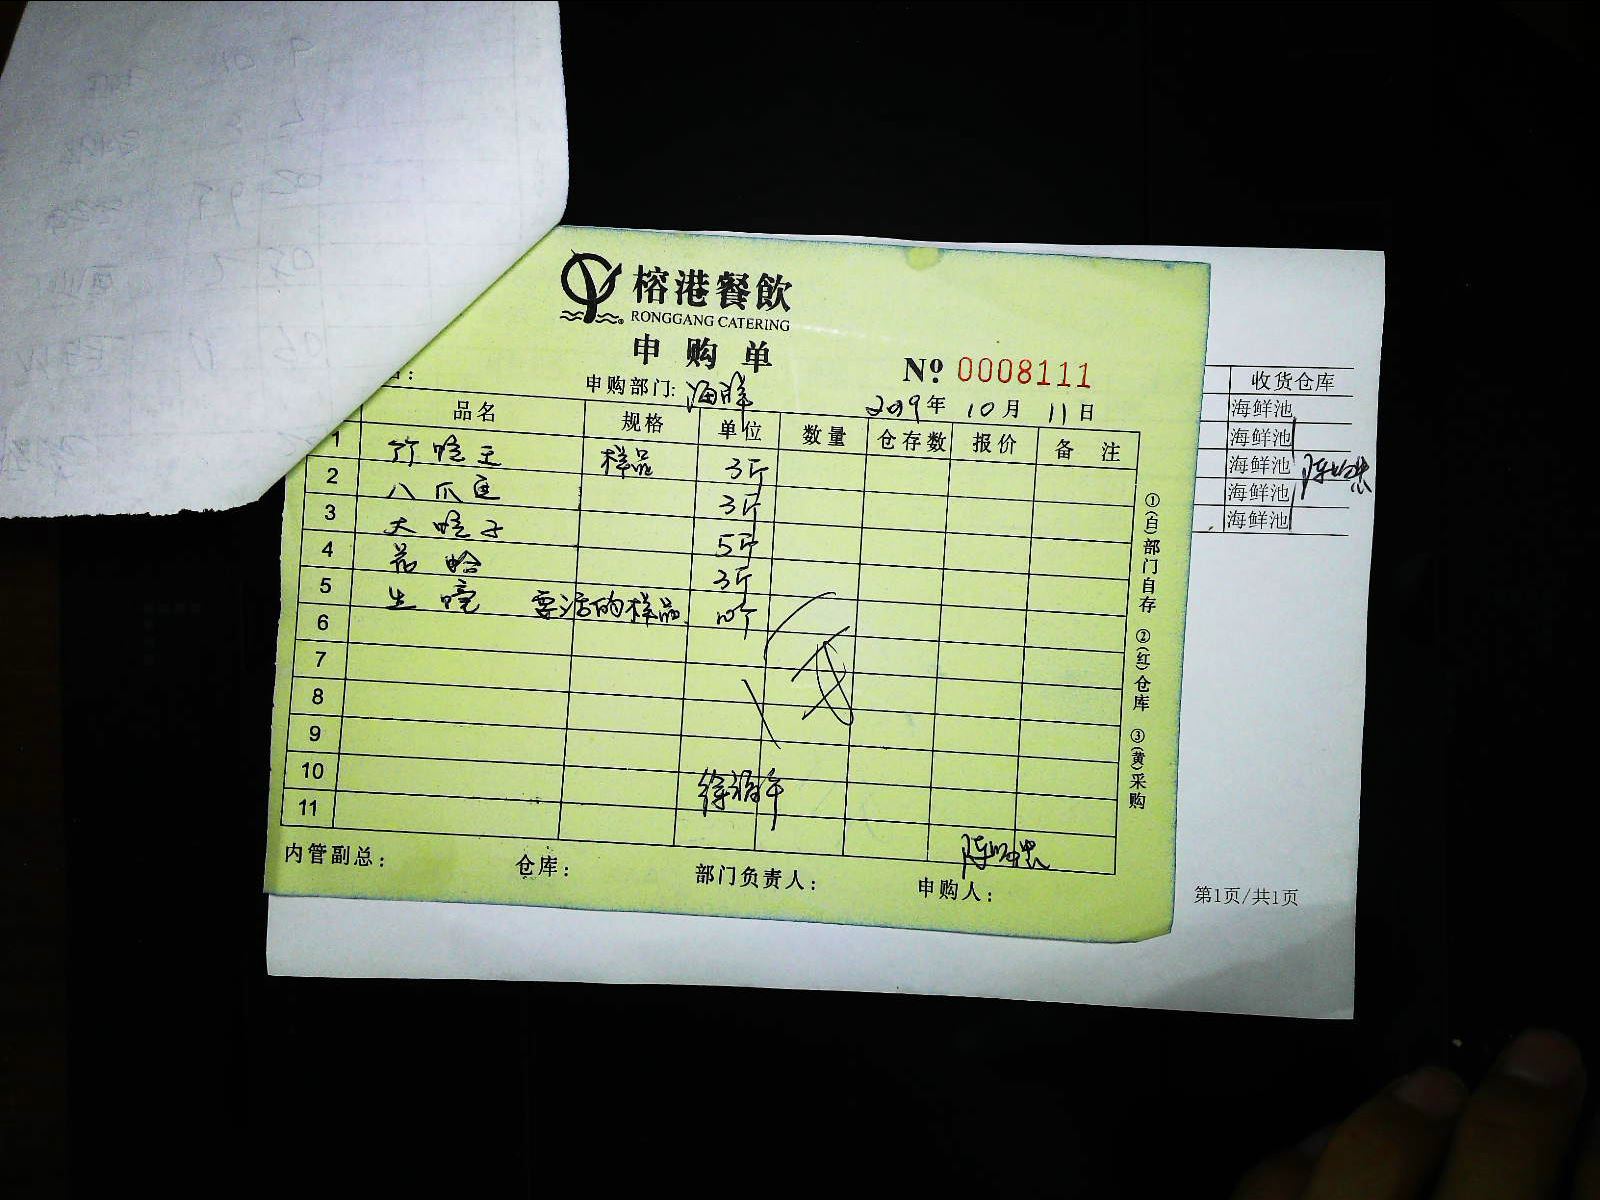 榕港餐飲
RONGGANG CATERING
申购单
№ 0008111
申购部门: 海鲜
2019年 10月 11日
品名 规格 单位 数量 仓存数 报价 备注
1 竹 王 样品 3斤
2 八爪 3斤
3 大 子 5斤
4 花蛤 3斤
5 生 要活的样品 10个
6
7
8
9
10
11
内管副总: 仓库: 部门负责人: 申购人:
①(白)部门自存 ②(红)仓库 ③(黄)采购
收货仓库
海鲜池
海鲜池
海鲜池
海鲜池
海鲜池
第1页/共1页